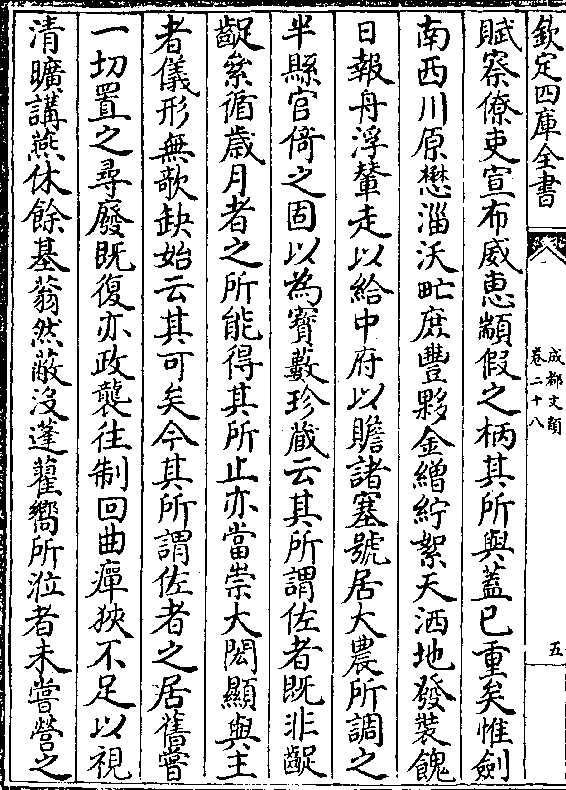 欽定四庫全書
成都文類
卷二十八
五
賦察僚吏宣布威惠顓假之柄其所與蓋已重矣惟劍
南西川原懋淄沃甿庶豐夥金繒紵絮天洒地發裝餽
日報舟浮輦走以給中府以贍諸塞號居大農所調之
半縣官倚之固以為寳藪珍藏云其所謂佐者既非齪
齪索循歲月者之所能得其所止亦當崇大閎顯與主
者儀形無歌缺始云其可矣今其所謂佐者之居舊嘗
一切置之尋廢既復亦政襲往制回曲痺狹不足以視
清曠講燕休餘基蓊然蔽沒蓬藋嚮所涖者未嘗營之